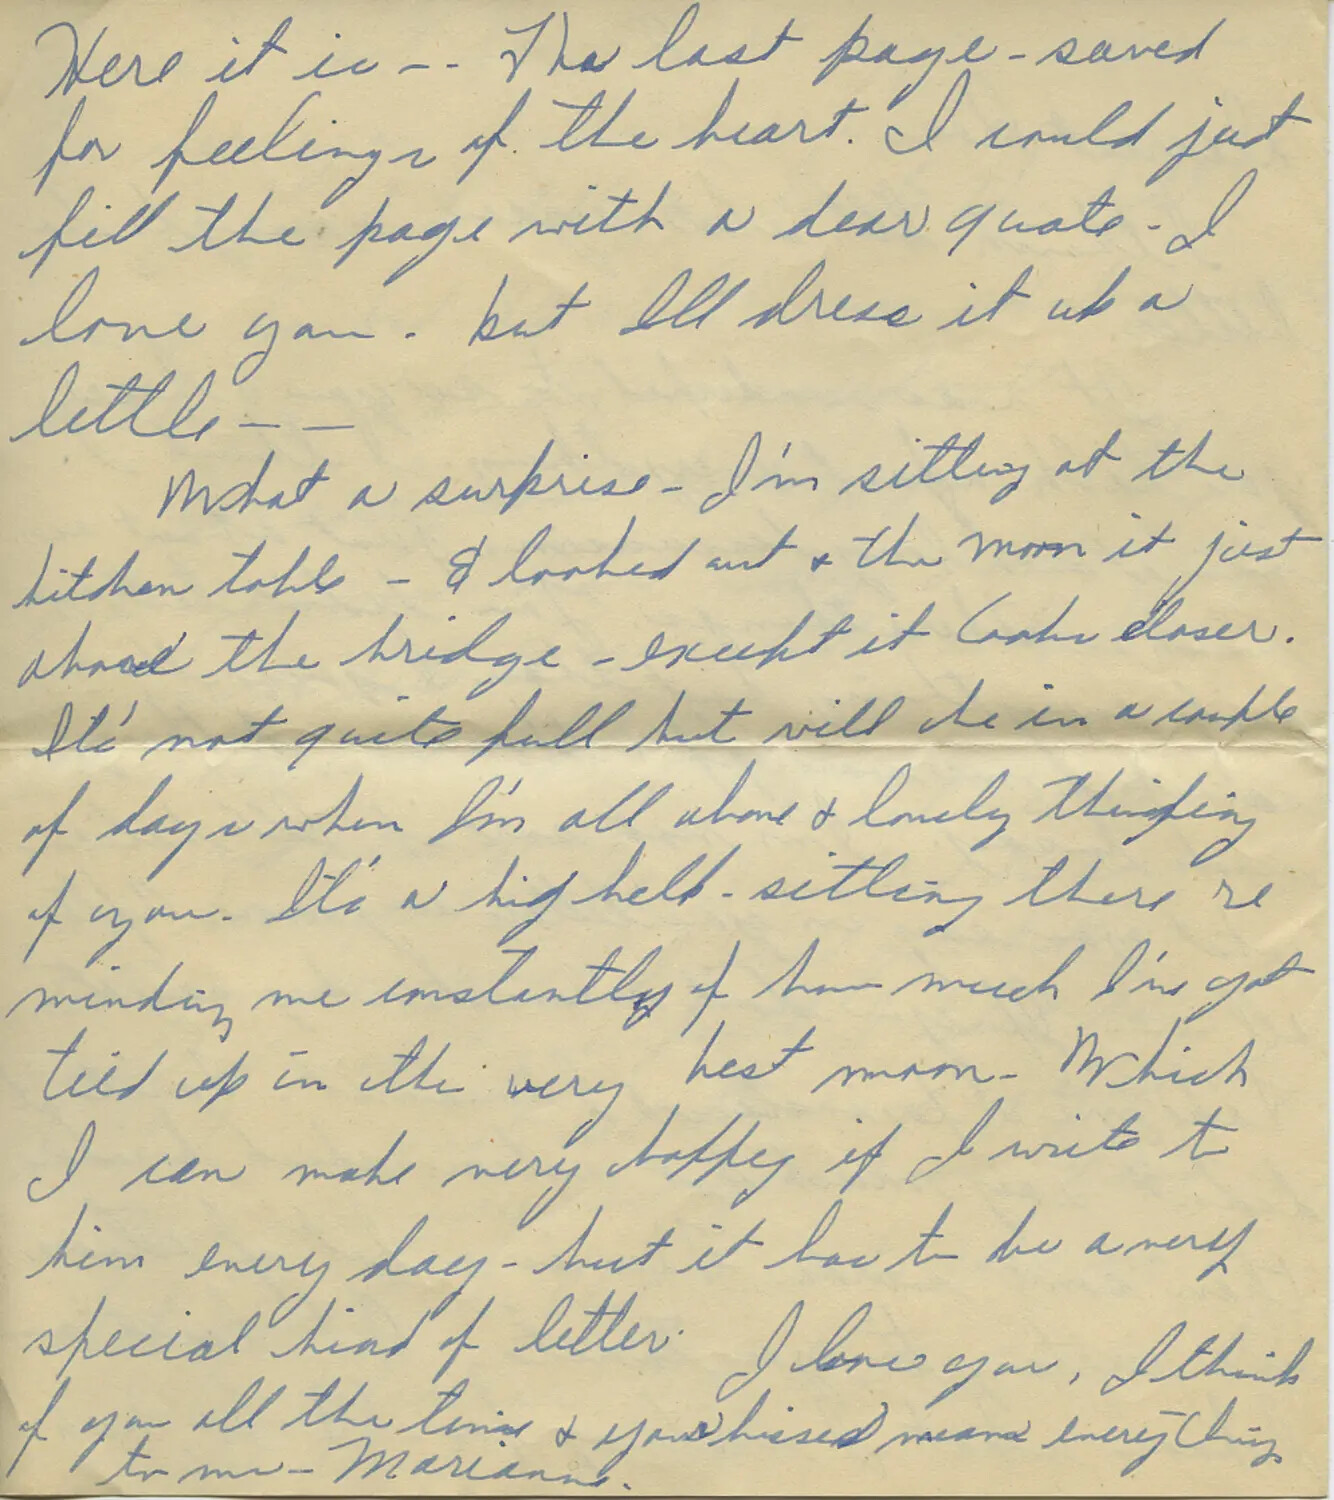 Here it is -- The last page - saved
for feelings of the heart. I could just
fill the page with a dear quote - I
love you. but I'll dress it up a
little --
What a surprise - I'm sitting at the
kitchen table - & looked out & the moon it just
above the bridge - except it looks closer.
It's not quite full but will be in a couple
of days when I'm all alone & lonely thinking
of you. It's a big help - sitting there re
minding me constantly of how much I've got
tied up in the very best moon - Which
I can make very happy if I write to
him every day - but it has to be a very
special kind of letter. I love you, I think
of you all the time & your kisses means everything
to me - Marianne.